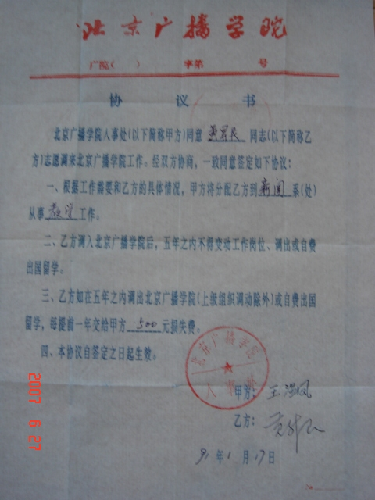 北京广播学院
广院( ) 字第 号
协议书
北京广播学院人事处(以下简称甲方)同意 同志(以下简称乙
方)志愿调来北京广播学院工作。经双方协商,一致同意签定如下协议:
一、根据工作需要和乙方的具体情况,甲方将分配乙方到 新闻 系(处)
从事 教学 工作。
二、乙方调入北京广播学院后,五年之内不得变动工作岗位、调出或自费
出国留学。
三、乙方如在五年之内调出北京广播学院(上级组织调动除外)或自费出国
留学,每提前一年交给甲方 500 元损失费。
四、本协议自签定之日起生效。
北京广播学院
人事处
甲方:王
乙方:
年 月 17日
2007 8 27